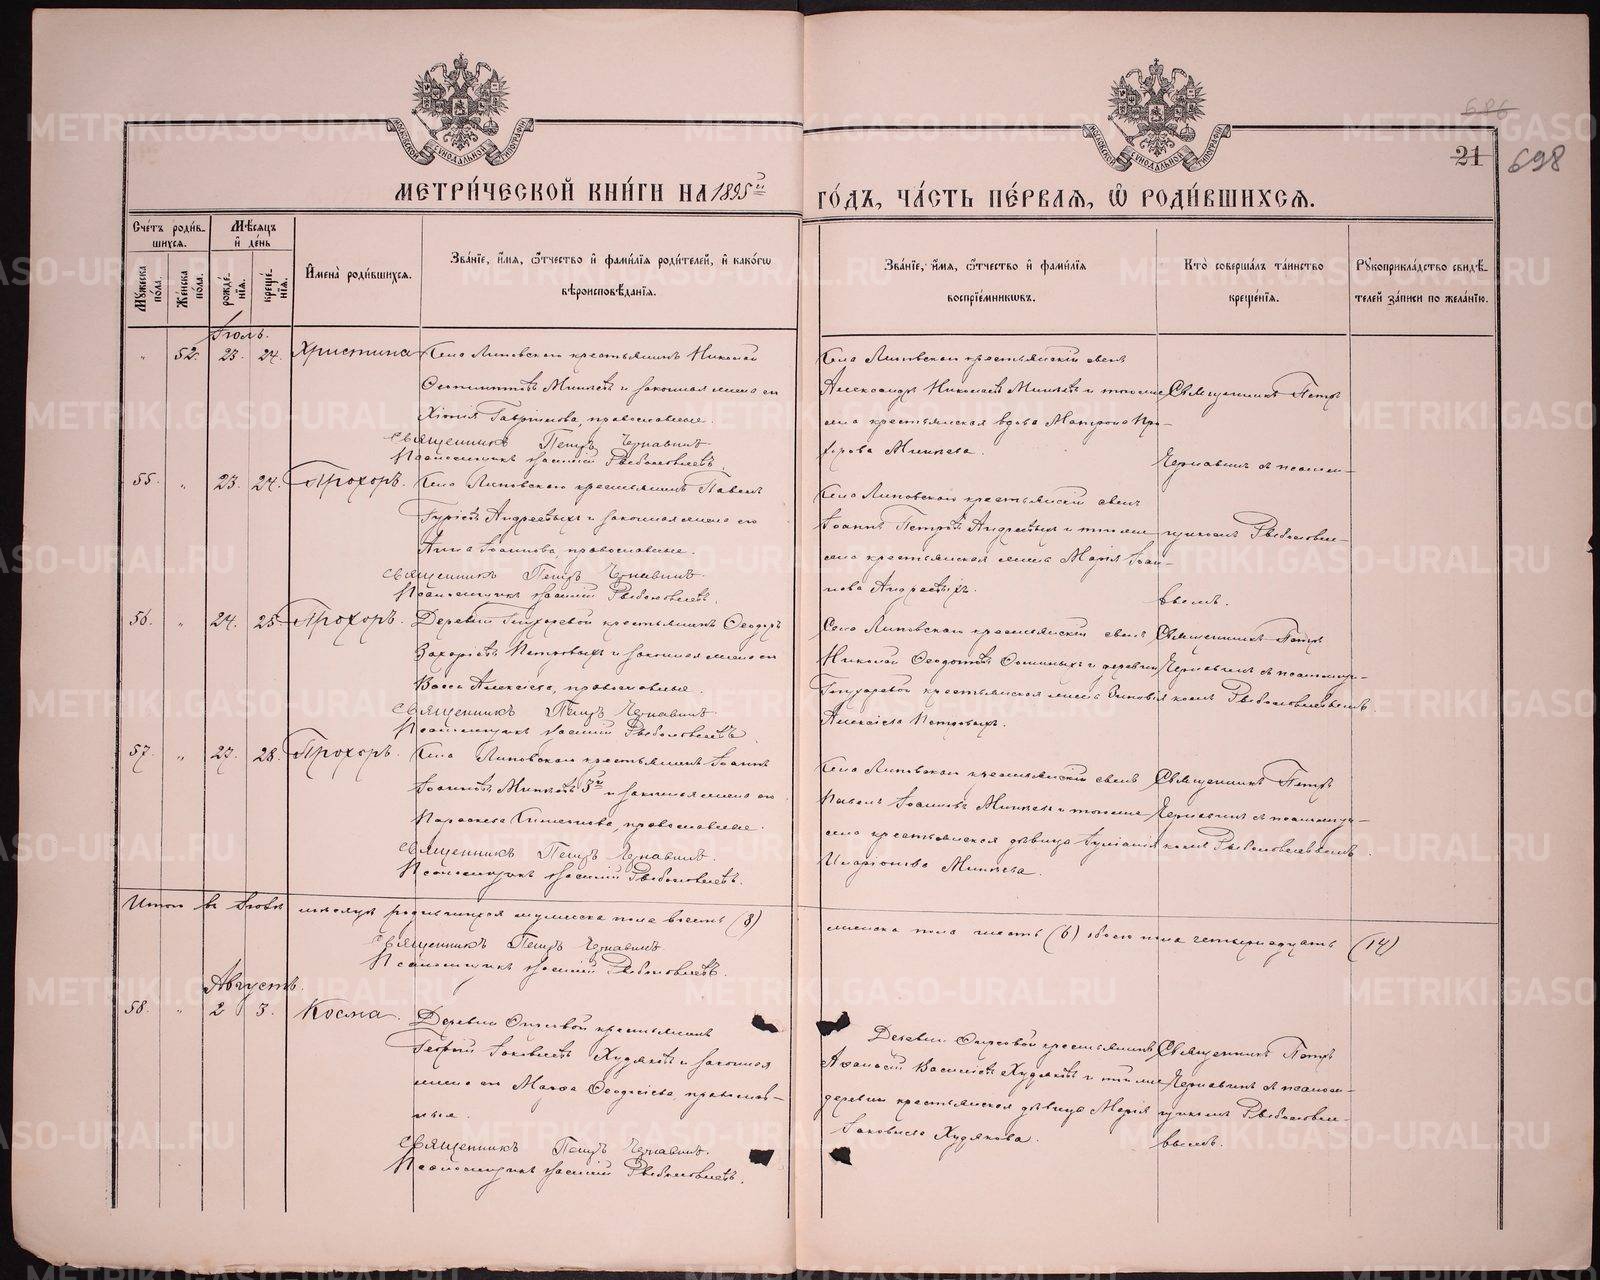 МОСКОВСКОЙ СѴНОДАЛЬНОЙ ТИПОГРАФІИ
МОСКОВСКОЙ СѴНОДАЛЬНОЙ ТИПОГРАФІИ
686
21 698
МЕТРИ́ЧЕСКОЙ КНИ́ГИ НА 1895й ГО́ДЪ, ЧА́СТЬ ПЕ́РВАЯ, Ѡ҆ РОДИ́ВШИХСЯ.
Сче́тъ роди́вшихся.
Мꙋжеска по́ла.
Женска по́ла.
Мѣ́сяцъ и҆ де́нь
рожде́нїя.
креще́нїя.
И҆мена̀ роди́вшихся.
Зва́нїе, и҆́мя, ѻ҆́тчество и҆ фами́лїя роди́телей, и҆ како́гѡ вѣроисповѣ́данїя.
Зва́нїе, и҆́мя, ѻ҆́тчество и҆ фами́лїя воспрїе́мниковъ.
Кто̀ соверша́лъ та́инство креще́нїя.
Рꙋкоприкла́дство свидѣ́телей за́писи по жела́нїю.
Іюль.
" 52. 23. 24. Христина
Села Липовскаго крестьянинъ Николай
Минѣевъ и законная жена его
Хіонія Гавриилова, православные.
Священникъ Петръ Чернавинъ.
Псаломщикъ Василій Рыболовлевъ.
Села Липовскаго крестьянскій сынъ
Александръ Николаевъ Минѣевъ и того же
села крестьянская вдова Матрона Прохорова Минѣева.
Священникъ Петръ
Чернавинъ съ псаломщикомъ Рыболовлевымъ.
55. " 23. 24. Прохоръ.
Села Липовскаго крестьянинъ Павелъ
Гуріевъ Андреевыхъ и законная жена его
Анна Іоаннова, православные.
Священникъ Петръ Чернавинъ.
Псаломщикъ Василій Рыболовлевъ.
Села Липовскаго крестьянскій сынъ
Іоаннъ Петровъ Андреевыхъ и того же
села крестьянская жена Марія Іоаннова Андреевыхъ.
56. " 24. 25. Прохоръ.
Деревни крестьянинъ Ѳеодоръ
Захаріевъ Петровыхъ и законная жена его
Васса Алексіева, православные.
Священникъ Петръ Чернавинъ.
Псаломщикъ Василій Рыболовлевъ.
Села Липовскаго крестьянскій сынъ
Николай Ѳеодотовъ и деревни
крестьянская жена Зиновія
Алексіева Петровыхъ.
Священникъ Петръ
Чернавинъ съ псаломщикомъ Рыболовлевымъ.
57. " 27. 28. Прохоръ.
Села Липовскаго крестьянинъ Іоаннъ
Іоанновъ Минѣевъ 3й и законная жена его
Параскева, православные.
Священникъ Петръ Чернавинъ.
Псаломщикъ Василій Рыболовлевъ.
Села Липовскаго крестьянскій сынъ
Павелъ Іоанновъ Минѣевъ и того же
села крестьянская дѣвица Іуліанія
Иларіонова Минѣева.
Священникъ Петръ
Чернавинъ съ псаломщикомъ Рыболовлевымъ.
Итого въ Іюлѣ мѣсяцѣ родившихся мужеска пола восемь (8)
женска пола шесть (6) обоего пола четырнадцать (14)
Священникъ Петръ Чернавинъ
Псаломщикъ Василій Рыболовлевъ.
Августъ.
58. " 2 3. Косма.
Деревни крестьянинъ
Георгій Іаковлевъ Худяковъ и законная
жена его Марѳа Ѳеодосіева, православные.
Священникъ Петръ Чернавинъ.
Псаломщикъ Василій Рыболовлевъ.
Деревни крестьянинъ
Аѳанасій Василіевъ Худяковъ и той же
деревни крестьянская дѣвица Марія
Іаковлева Худякова.
Священникъ Петръ
Чернавинъ съ псаломщикомъ Рыболовлевымъ.
METRIKI.GASO-URAL.RU